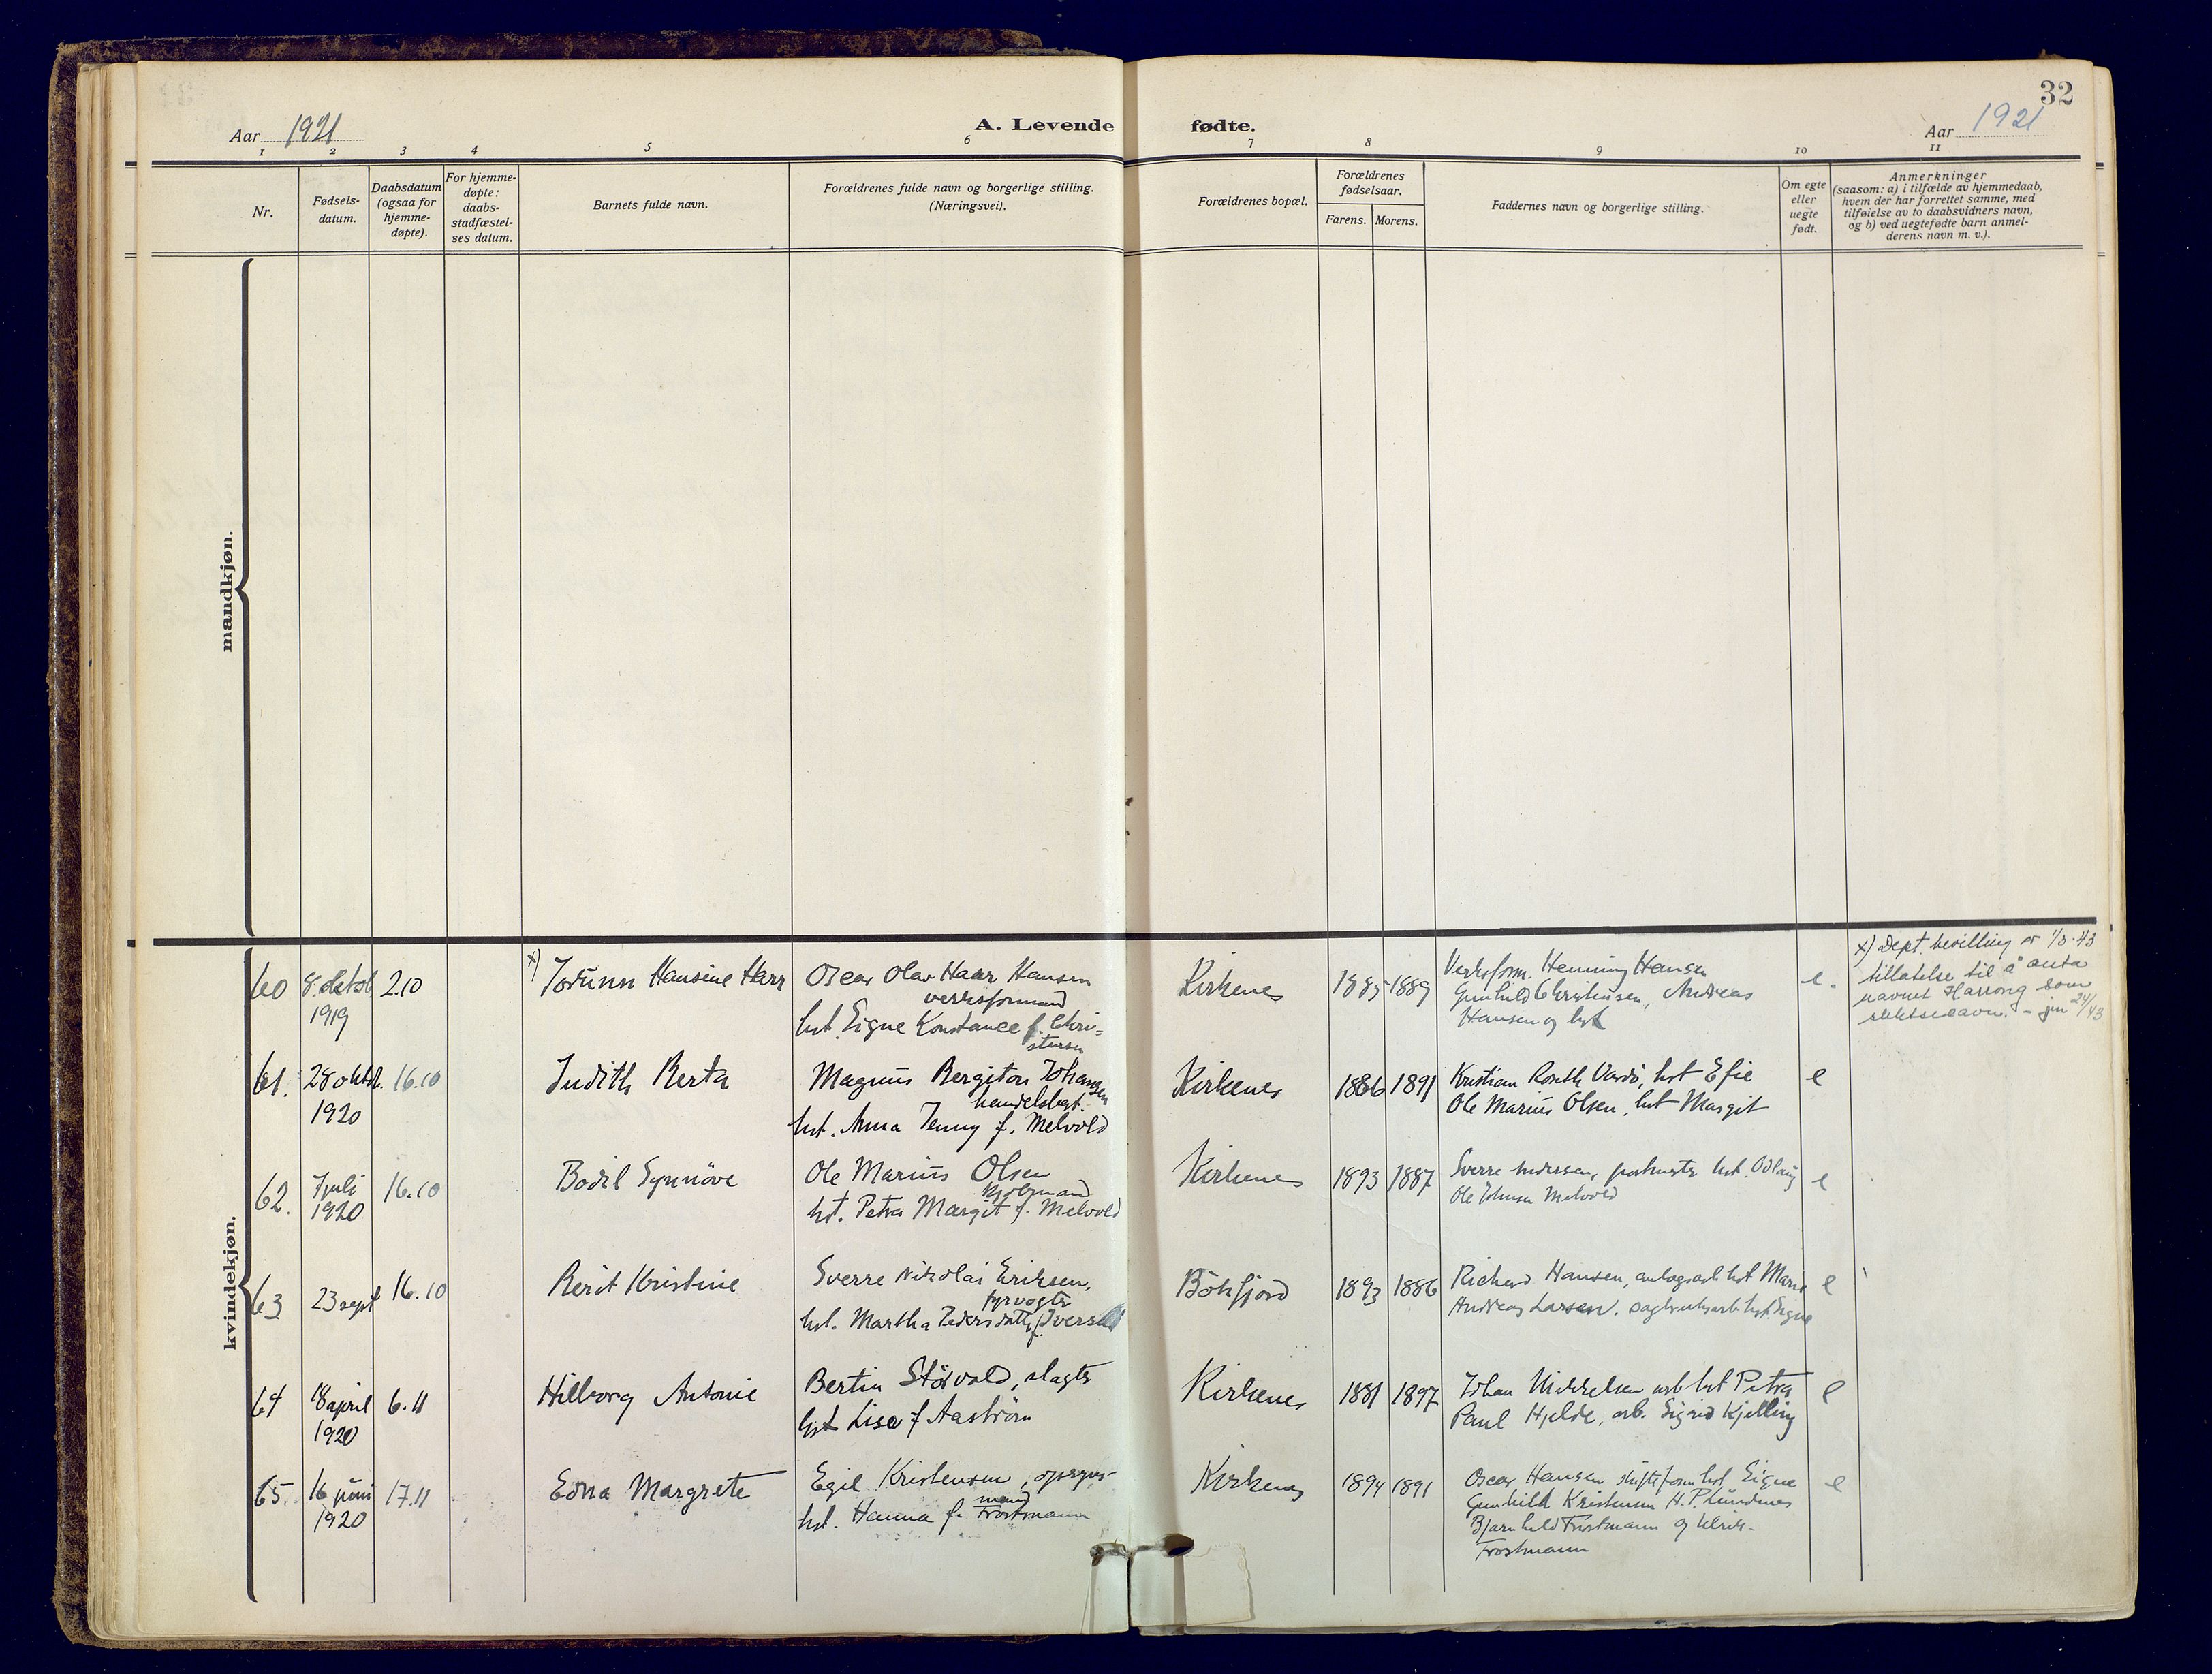 32
Aar 1921
A. Levende fødte.
Aar 1921
1 2 3 4 5 6 7 8 9 10 11
Nr.
Fødsels-
datum.
Daabsdatum
(ogsaa for
hjemme-
døpte).
For hjemme-
døpte:
daabs-
stadfæstel-
ses datum.
Barnets fulde navn.
Forældrenes fulde navn og borgerlige stilling.
(Næringsvei).
Forældrenes bopæl.
Forældrenes
fødselsaar.
Farens. Morens.
Faddernes navn og borgerlige stilling.
Om egte
eller
uegte
født.
Anmerkninger
(saasom: a) i tilfælde av hjemmedaab,
hvem der har forrettet samme, med
tilføielse av to daabsvidners navn,
og b) ved uegtefødte barn anmel-
derens navn m. v.).
mandkjøn.
kvindekjøn.
60
8. oktob
1919
2.10
x) Jorunn Hansine Harr
Oscar Olav Haar Hansen
verksformand
hst. Signe Konstance f. Chri=
stensen
Kirkenes
1885 1889
Verksform. Henning Hansen
Gunhild Christensen, Andreas
Hansen og hst
e.
x) Dept. bevilling av 1/3-43
tillatelse til å anta
navnet Harrong som
slektsnavn. 24/43
61.
28 oktob.
1920
16.10
Judith Berta
Magnus Bergiton Johansen
handelsbest.
hst. Anna Jenny f. Melvold
Kirkenes
1886 1891
Kristian Vardö, hst Efie
Ole Marius Olsen, hst Margit
e
62.
7 juli
1920
16.10
Bodil Synnöve
Ole Marius Olsen
hst. Petra Margit f. Melvold
Kirkenes
1893 1887
Sverre Andersen, hst. Odlaug
Ole Johnsen Melvold
e
63
23 sept
16.10
Berit Kristine
Sverre Nikolai Eriksen,
fyrvogter
hst. Martha Pedersdatter f. Iversen
Bökfjord
1893 1886
Richard Hansen, anlagsarb. hst Marie
Andreas Larsen. sagbruksarb. hst. Signe
e
64
18 april
1920
6.11
Hilborg Antonie
Bertin Stövold, slagter
hst Lisa f Aaström
Kirkenes
1881 1897
Johan Mikkelsen arb hst Petra
Paul Hjelde, arb. Sigrid Kjelling
e
65.
16 juni
1920
17.11
Edna Margrete
Egil Kristensen, opsyns-
mand
hst. Hanna f. Trostmann
Kirkenes
1894 1891
Oscar Hansen skifteform hst Signe
Gunhild Kristensen H. P. Lündenes
Bjarnhild Trostmann og Ulrik
Trostmann
e